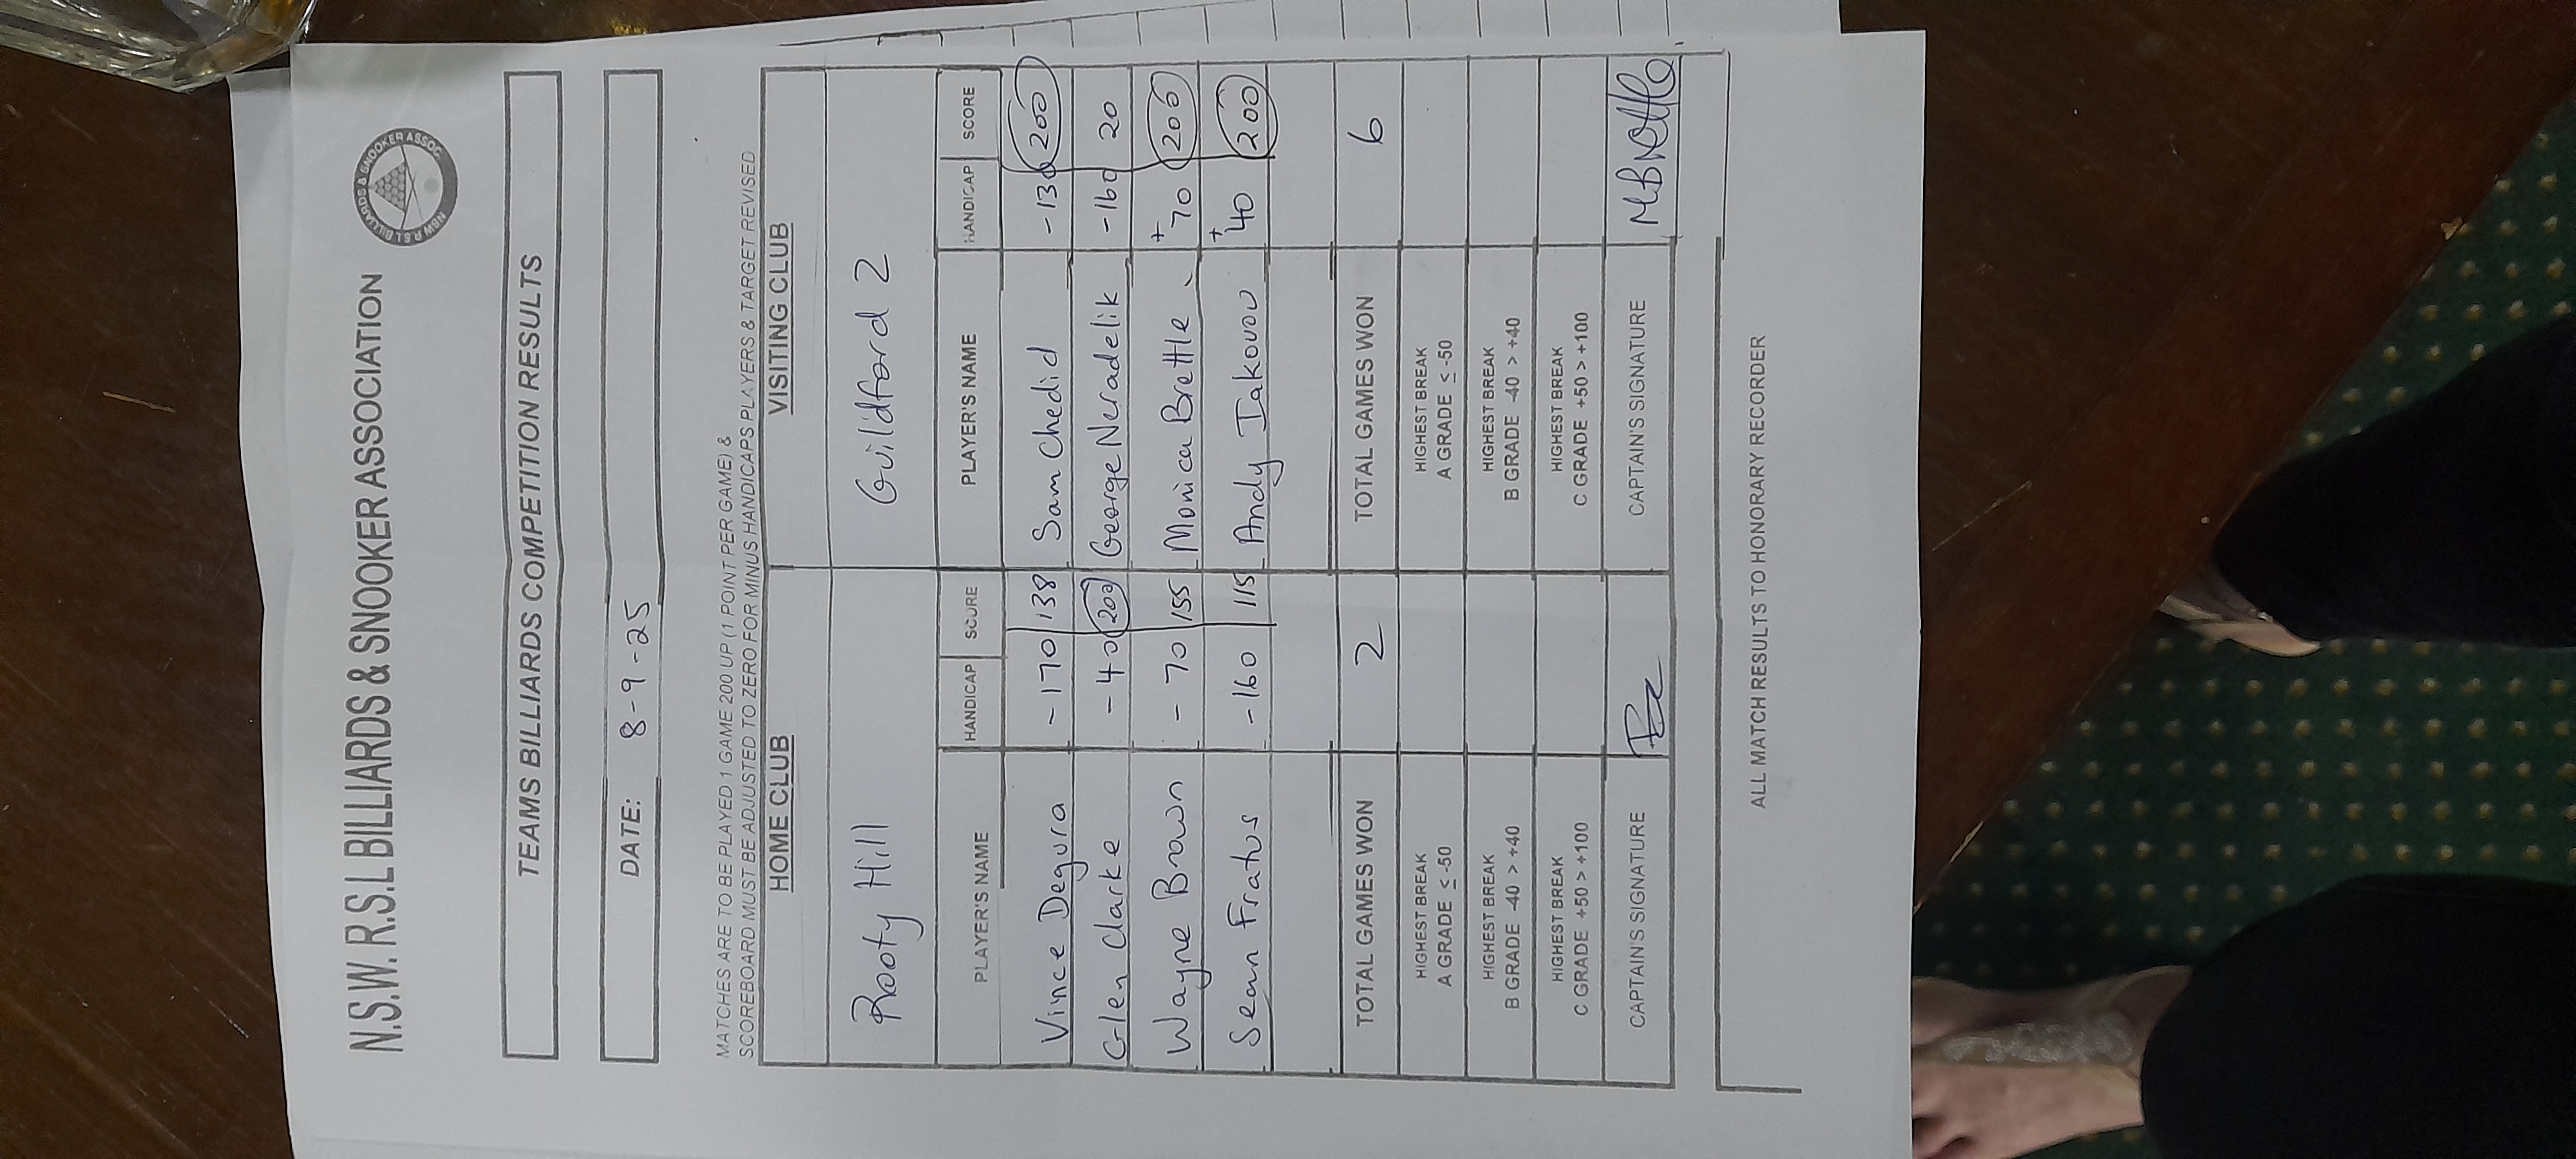 N.S.W. R.S.L BILLIARDS & SNOOKER ASSOCIATION
NSW R S L BILLIARDS & SNOOKER ASSOC.
TEAMS BILLIARDS COMPETITION RESULTS
DATE: 8-9-25
MATCHES ARE TO BE PLAYED 1 GAME 200 UP (1 POINT PER GAME) &
SCOREBOARD MUST BE ADJUSTED TO ZERO FOR MINUS HANDICAPS PLAYERS & TARGET REVISED
HOME CLUB VISITING CLUB
Rooty Hill Guildford 2
PLAYER'S NAME HANDICAP SCORE PLAYER'S NAME HANDICAP SCORE
Vince Degura -170 138 Sam Chedid -130 200
Glen Clarke -40 200 George Neradelik -160 20
Wayne Brown -70 155 Monica Brettle +70 200
Sean Fratus -160 115 Andy Iakovou +40 200
TOTAL GAMES WON 2 TOTAL GAMES WON 6
HIGHEST BREAK HIGHEST BREAK
A GRADE ≤ -50 A GRADE ≤ -50
HIGHEST BREAK HIGHEST BREAK
B GRADE -40 > +40 B GRADE -40 > +40
HIGHEST BREAK HIGHEST BREAK
C GRADE +50 > +100 C GRADE +50 > +100
CAPTAIN'S SIGNATURE CAPTAIN'S SIGNATURE MBrettle
ALL MATCH RESULTS TO HONORARY RECORDER